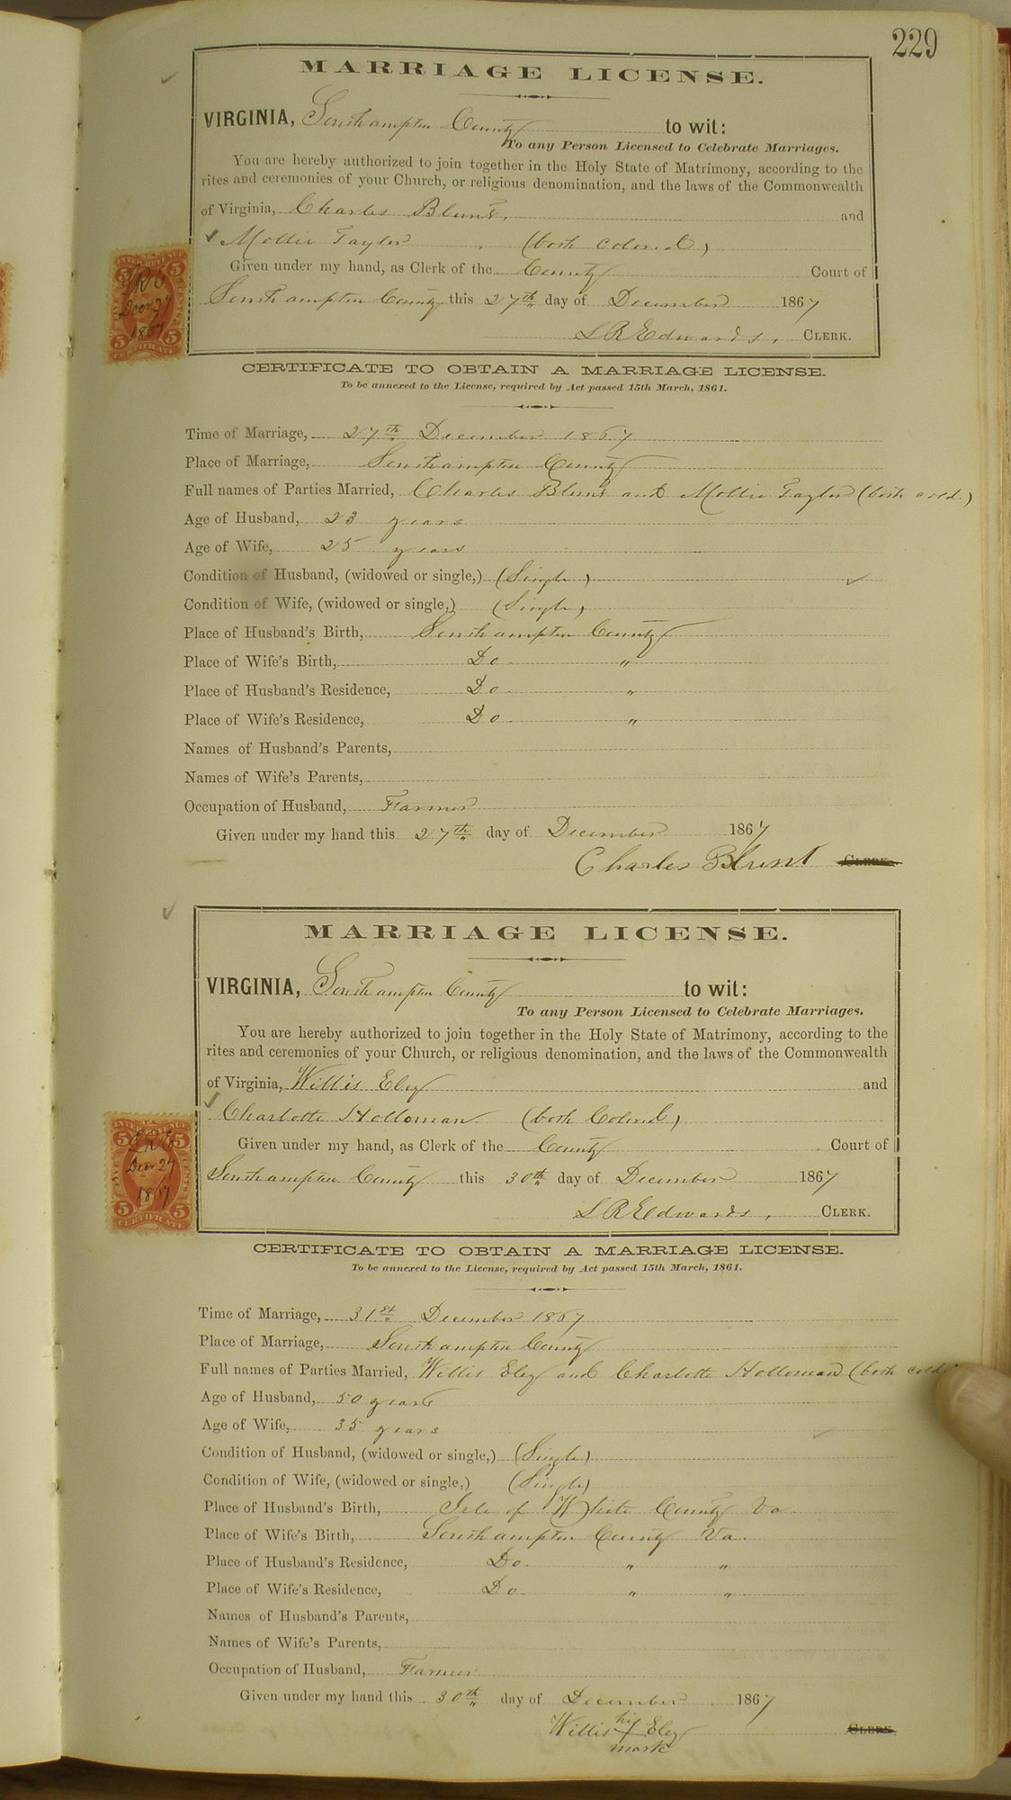 229
MARRIAGE LICENSE.
VIRGINIA, Southampton County to wit:
To any Person Licensed to Celebrate Marriages.
You are hereby authorized to join together in the Holy State of Matrimony, according to the
rites and ceremonies of your Church, or religious denomination, and the laws of the Commonwealth
of Virginia, Charles Blunt, and
Mollie Taylor (both colored)
Given under my hand, as Clerk of the County Court of
Southampton County this 27th day of December 1867
L R Edwards, CLERK.
INTERNAL REVENUE
5 5
LRE
Decr 27
1867
5 5
CERTIFICATE
CERTIFICATE TO OBTAIN A MARRIAGE LICENSE.
To be annexed to the License, required by Act passed 15th March, 1861.
Time of Marriage, 27th December 1867
Place of Marriage, Southampton County
Full names of Parties Married, Charles Blunt and Mollie Taylor (both cold.)
Age of Husband, 23 years
Age of Wife, 25 years
Condition of Husband, (widowed or single,) (Single)
Condition of Wife, (widowed or single,) (Single)
Place of Husband's Birth, Southampton County
Place of Wife's Birth, Do "
Place of Husband's Residence, Do "
Place of Wife's Residence, Do "
Names of Husband's Parents,
Names of Wife's Parents,
Occupation of Husband, Farmer
Given under my hand this 27th day of December 1867
Charles Blunt CLERK.
MARRIAGE LICENSE.
VIRGINIA, Southampton County to wit:
To any Person Licensed to Celebrate Marriages.
You are hereby authorized to join together in the Holy State of Matrimony, according to the
rites and ceremonies of your Church, or religious denomination, and the laws of the Commonwealth
of Virginia, Willis Eley and
Charlotte Holloman (both Colored)
Given under my hand, as Clerk of the County Court of
Southampton County this 30th day of December 1867
L R Edwards, CLERK.
INTERNAL REVENUE
5 5
LRE
Decr 27
1867
5 5
CERTIFICATE
CERTIFICATE TO OBTAIN A MARRIAGE LICENSE.
To be annexed to the License, required by Act passed 15th March, 1861.
Time of Marriage, 31st December 1867
Place of Marriage, Southampton County
Full names of Parties Married, Willis Eley and Charlotte Holloman (both cold.
Age of Husband, 50 years
Age of Wife, 35 years
Condition of Husband, (widowed or single,) (Single)
Condition of Wife, (widowed or single,) (Single)
Place of Husband's Birth, Isle of White County Va
Place of Wife's Birth, Southampton County Va.
Place of Husband's Residence, Do. " "
Place of Wife's Residence, Do. " "
Names of Husband's Parents,
Names of Wife's Parents,
Occupation of Husband, Farmer
Given under my hand this 30th day of December 1867
his
Willis Eley CLERK.
mark